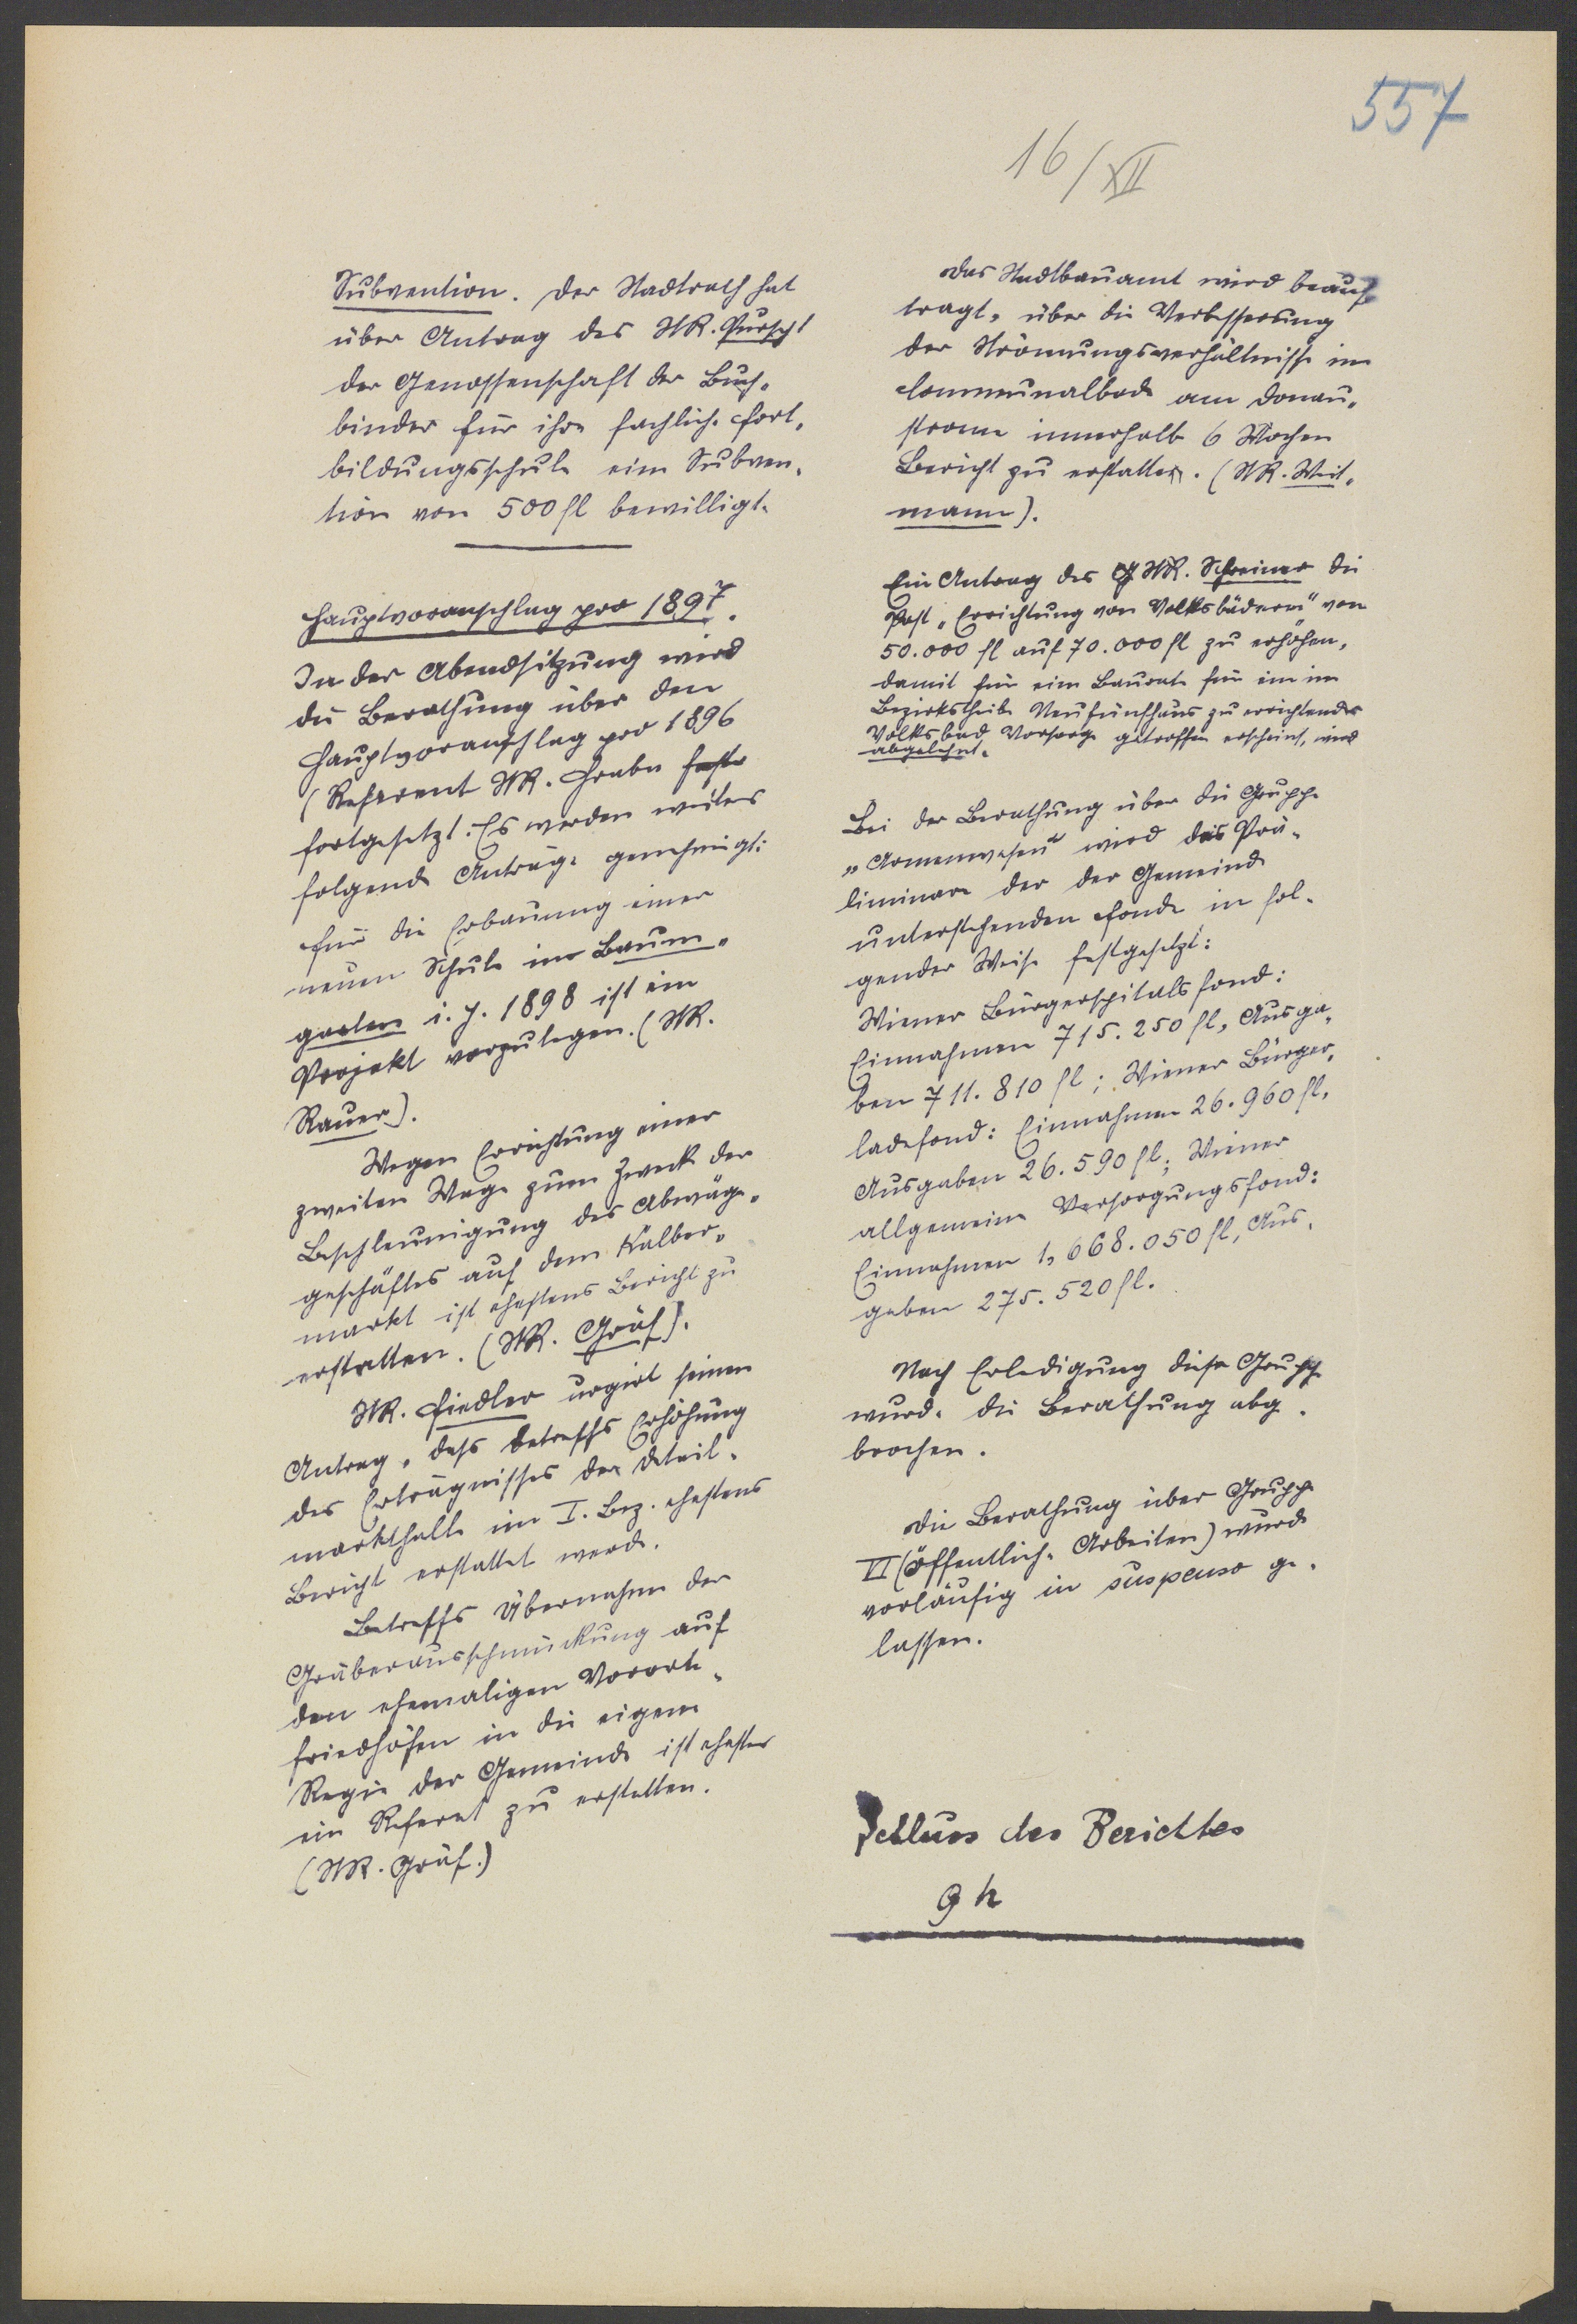 557
16/XII
Subvention. Der Stadtrath hat
über Antrag des StR. Purscht
der Genossenschaft der Buch-
binder für ihre fachliche Fort-
bildungsschule eine Subven-
tion von 500 fl bewilligt.
Hauptvoranschlag pro 1897.
In der Abendsitzung wird
die Berathung über den
Hauptvoranschlag pro 1896
(Referent StR. Hraba
fortgesetzt. Es werden weiters
folgende Anträge genehmigt:
Für die Erbauung einer
neuen Schule in Baum-
garten i. J. 1898 ist ein
Projekt vorzulegen. (StR.
Rauer).
Wegen Errichtung einer
zweiten Wage zum Zwecke der
Beschleunigung des Abwäge-
geschäftes auf dem Kälber-
markt ist ehestens Bericht zu
erstatten. (StR. Gräf).
StR. Fiedler urgirt seinen
Antrag, dass betreffs Erhöhung
des Erträgnisses der Detail-
markthalle im I. Bez. ehestens
Bericht erstattet werde.
Betreffs Übernahme der
Gräberausschmückung auf
den ehemaligen Vororte-
friedhöfen in die eigene
Regie der Gemeinde ist ehestens
ein Referat zu erstatten.
(StR. Gräf.)
Das Stadtbauamt wird beauf-
tragt, über die Verbesserung
der Strömungsverhältnisse im
Communalbade am Donau-
strome innerhalb 6 Wochen
Bericht zu erstatten. (StR. Weit-
mann).
Ein Antrag des StR. Schreiner die
Post „Errichtung von Volksbädern" von
50.000 fl auf 70.000 fl zu erhöhen,
damit für eine Baurate für ein im
Bezirkstheile Neufünfhaus zu errichtendes
Volksbad Vorsorge getroffen erscheint, wird
abgelehnt.
Bei der Berathung über die Gruppe
„Armenwesen" wird das Prä-
liminare der der Gemeinde
unterstehenden Fonde in fol-
gender Weise festgesetzt:
Wiener Bürgerspitalsfond:
Einnahmen 715.250 fl, Ausga-
ben 711.810 fl; Wiener Bürger-
ladefond: Einnahmen 26.960 fl,
Ausgaben 26.590 fl; Wiener
allgemeine Versorgungsfond:
Einnahmen 1,668.050 fl, Aus-
gaben 275.520 fl.
Nach Erledigung dieser Gruppe
wurde die Berathung abge-
brochen.
Die Berathung über Gruppe
VI (öffentliche Arbeiten) wurde
vorläufig in suspenso ge-
lassen.
Schluss des Berichtes
9 h